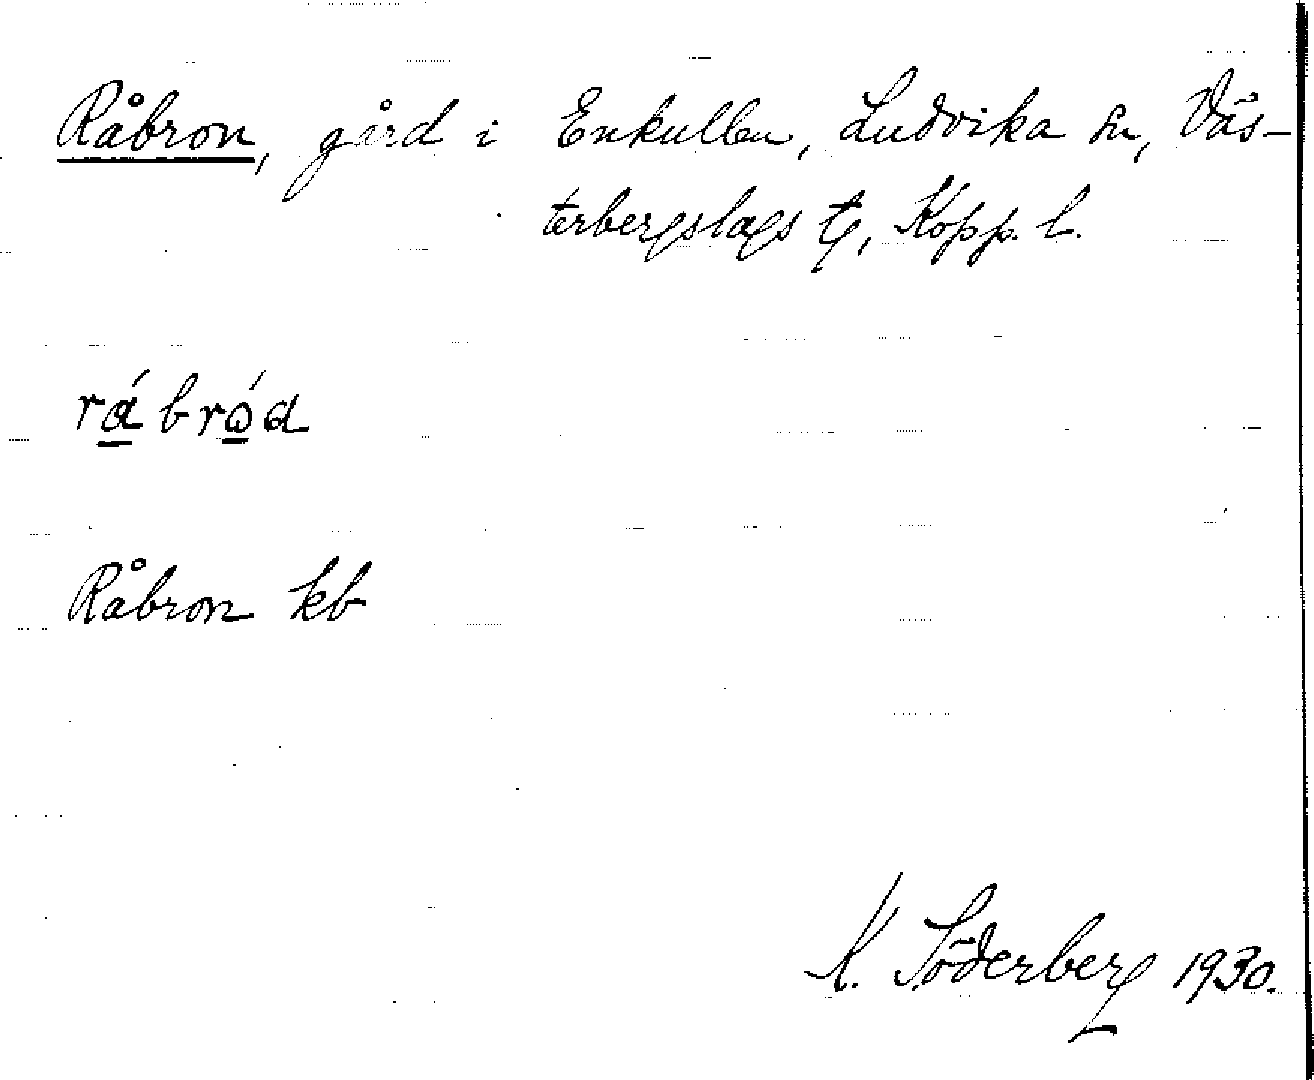 Råbron, gård i Enkullen, Ludvika sn, Väs-
terbergslags tg, Kopp. l.
rábrǫ́d
Råbron kb
K. Söderberg 1930.